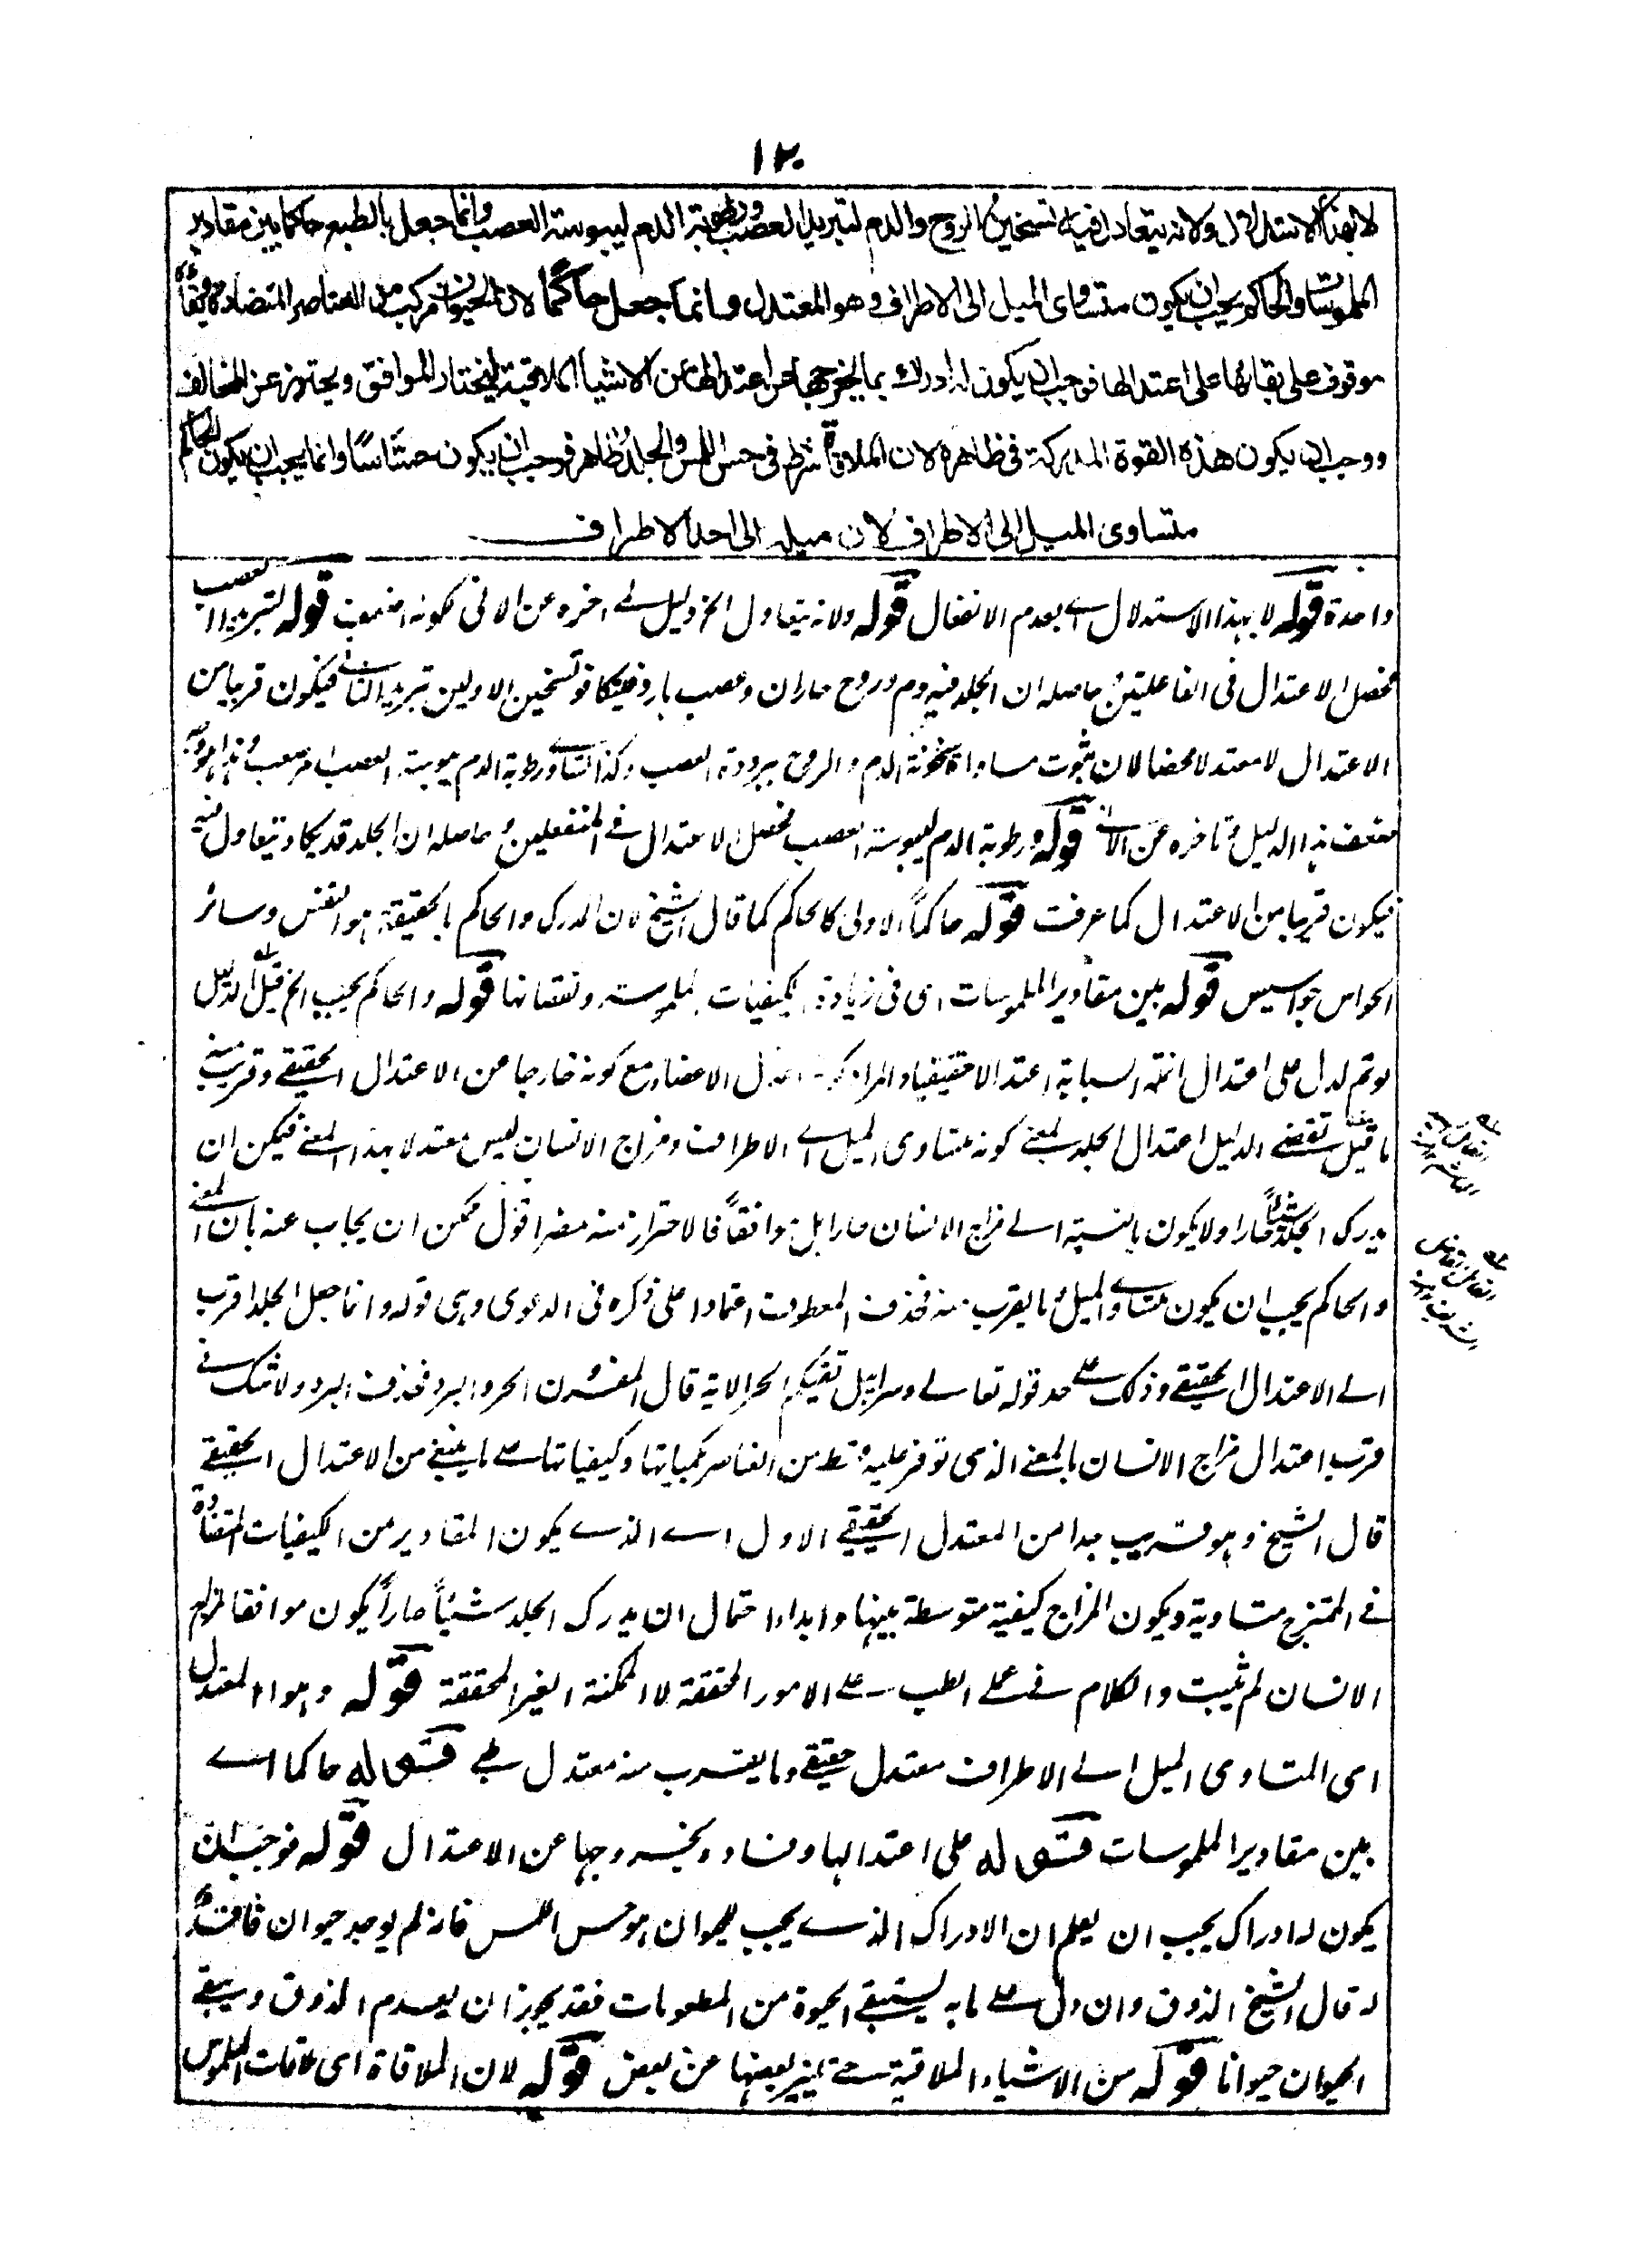 ١٢٠
لا بهذا الاستدلال ولانه يتعادل فيه تسخين الروح والدم لتبريد العصب ورطوبة الدم ليبوسة العصب وانما جعل بالطبع حاكما بين مقادير
الملموسات والحاكم يجب ان يكون متساوى الميل الى الاطراف وهو المعتدل وانما جعل حاكما لان الحيوان مركب من العناصر المتضادة وبقاؤه
موقوف على بقائها على اعتدالها فوجب ان يكون له ادراك بما يخرجها عن اعتدالها من الاشياء الملاقية ليختار الموافق ويحترز عن المخالف
ووجب ان يكون هذه القوة المدركة فى ظاهره لان الملاقاة شرط فى حس اللمس والجلد ظاهر فوجب ان يكون حساسا وانما يجب ان يكون الحاكم
متساوى الميل الى الاطراف لان ميله الى احد الاطراف
واحدة قوله لا بهذا الاستدلال اے بعدم الانفعال قوله ولانه يتعادل الخ دليل لے اخره عن الانى لكونه اضعف قوله لتبريد العصب
فحصل الاعتدال فى الفاعلتين حاصله ان الجلد فيه دم وروح حاران وعصب بارد فيتكافؤ تسخين الاولين تبريد الثانى فيكون قريبا من
الاعتدال لا معتدلا محضا لان ثبوت مساواة سخونة الدم والروح ببرودة العصب وكذا تساوى رطوبة الدم يبوسة العصب امر صعب
ضعف هذا الدليل وتاخره عن قوله ورطوبة الدم ليبوسة العصب فحصل الاعتدال فے المنفعلتين وحاصله ان الجلد قد يكاد يتعادل فيه
فيكون قريبا من الاعتدال كما عرفت قوله حاكما الاولى كالحاكم كما قال الشيخ لان المدرك والحاكم بالحقيقة هو النفس وسائر
الحواس جواسيس قوله بين مقادير الملموسات اى فى زيادة الكيفيات الملموسة ونقصانها قوله والحاكم يجب الخ قيل الدليل
لو تم لدل على اعتدال انملة السبابة اعتدالا حقيقيا والمراد كونه اعدل الاعضاء مع كونه خارجا من الاعتدال الحقيقے وقريب منه
ما قيل تقتضے الدليل اعتدال الجلد بمعنے كونه متساوى الميل اے الاطراف ومزاج الانسان ليس معتدلا بهذا المعنے فيمكن ان
يدرك الجلد شيئا حارا ولا يكون بالنسبة الے مزاج الانسان حارا بل موافقا فالاحتراز منه مضر اقول يمكن ان يجاب عنه بان المعنے
والحاكم يجب ان يكون متساوى الميل او ما يقرب منه فحذف المعطوف اعتمادا على ذكره فى الدعوى وهى قوله وانما جعل الجلد اقرب
الے الاعتدال الحقيقے وذلك علے حد قوله تعالے وسرابيل تقيكم الحر الاية قال المفسرون الحر والبرد فحذف البرد ولا شك فے
قرب اعتدال مزاج الانسان بالمعنے الذى توفر عليه قسط من العناصر بكمياتها وكيفياتها علے ما ينبغے من الاعتدال الحقيقے
قال الشيخ وهو قريب جدا من المعتدل الحقيقے الاول اے الذے يكون المقادير من الكيفيات المتضادة
فے الممتزج متساوية ويكون المزاج كيفية متوسطة بينها وابداء احتمال ان يدرك الجلد شيئا حارا يكون موافقا لمزاج
الانسان لم يثبت والكلام فے علے الطب علے الامور المحققة لا الممكنة الغير المحققة قوله وهو المعتدل
اى المتساوى الميل الے الاطراف معتدل حقيقے وما يقرب منه معتدل طبے قوله حاكما اے
بين مقادير الملموسات قوله على اعتدالها وفساده بخروجها عن الاعتدال قوله فوجب ان
يكون له ادراك يجب ان يعلم ان الادراك الذے يجب للحيوان هو حس اللمس فانه لم يوجد حيوان فاقد
له قال الشيخ الذوق وان دل علے ما به يستبقے الحيوة من المطعومات فقد يجوز ان يعدم الذوق ويبقے
الحيوان حيوانا قوله من الاشياء الملاقية حتے تميز بعضها عن بعض قوله لان الملاقاة اى ملاقات الملموس